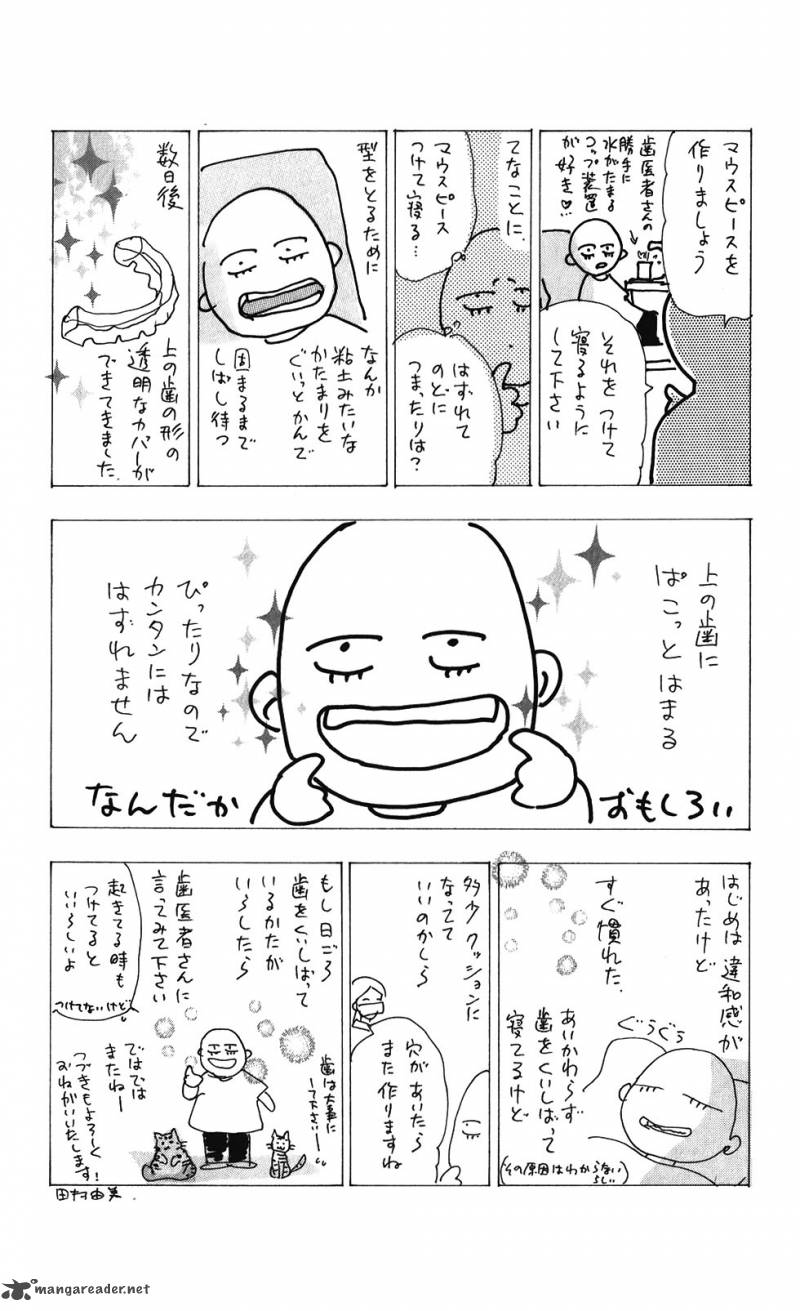 マウスピースを
作りましょう
歯医者さんの
勝手に
水がたまる
コップ装置
が好き♡
それをつけて
寝るように
して下さい
てなことに
マウスピース
つけて寝る…
はずれて
のどに
つまったりは?
型をとるために
なんか
粘土みたいな
かたまりを
ぐいっとかんで
固まるまで
しばし待つ
数日後
上の歯の形の
透明なカバーが
できてきました
上の歯に
ぱこっとはまる
ぴったりなので
カンタンには
はずれません
なんだか おもしろい
はじめは違和感が
あったけど
すぐ慣れた
ぐうぐう
あいかわらず
歯をくいしばって
寝てるけど
(その原因はわからない
らしい)
多少クッションに
なってて
いいのかしら
穴があいたら
また作りますね
もし日ごろ
歯をくいしばって
いるかたが
いらしたら
歯医者さんに
言ってみて下さい
起きてる時も
つけてると
いいらしいよ
つけてないけど
歯は大事に
して下さいー
ではでは
またねー
つづきもよろしく
おねがいいたします!
田村由美
mangareader.net